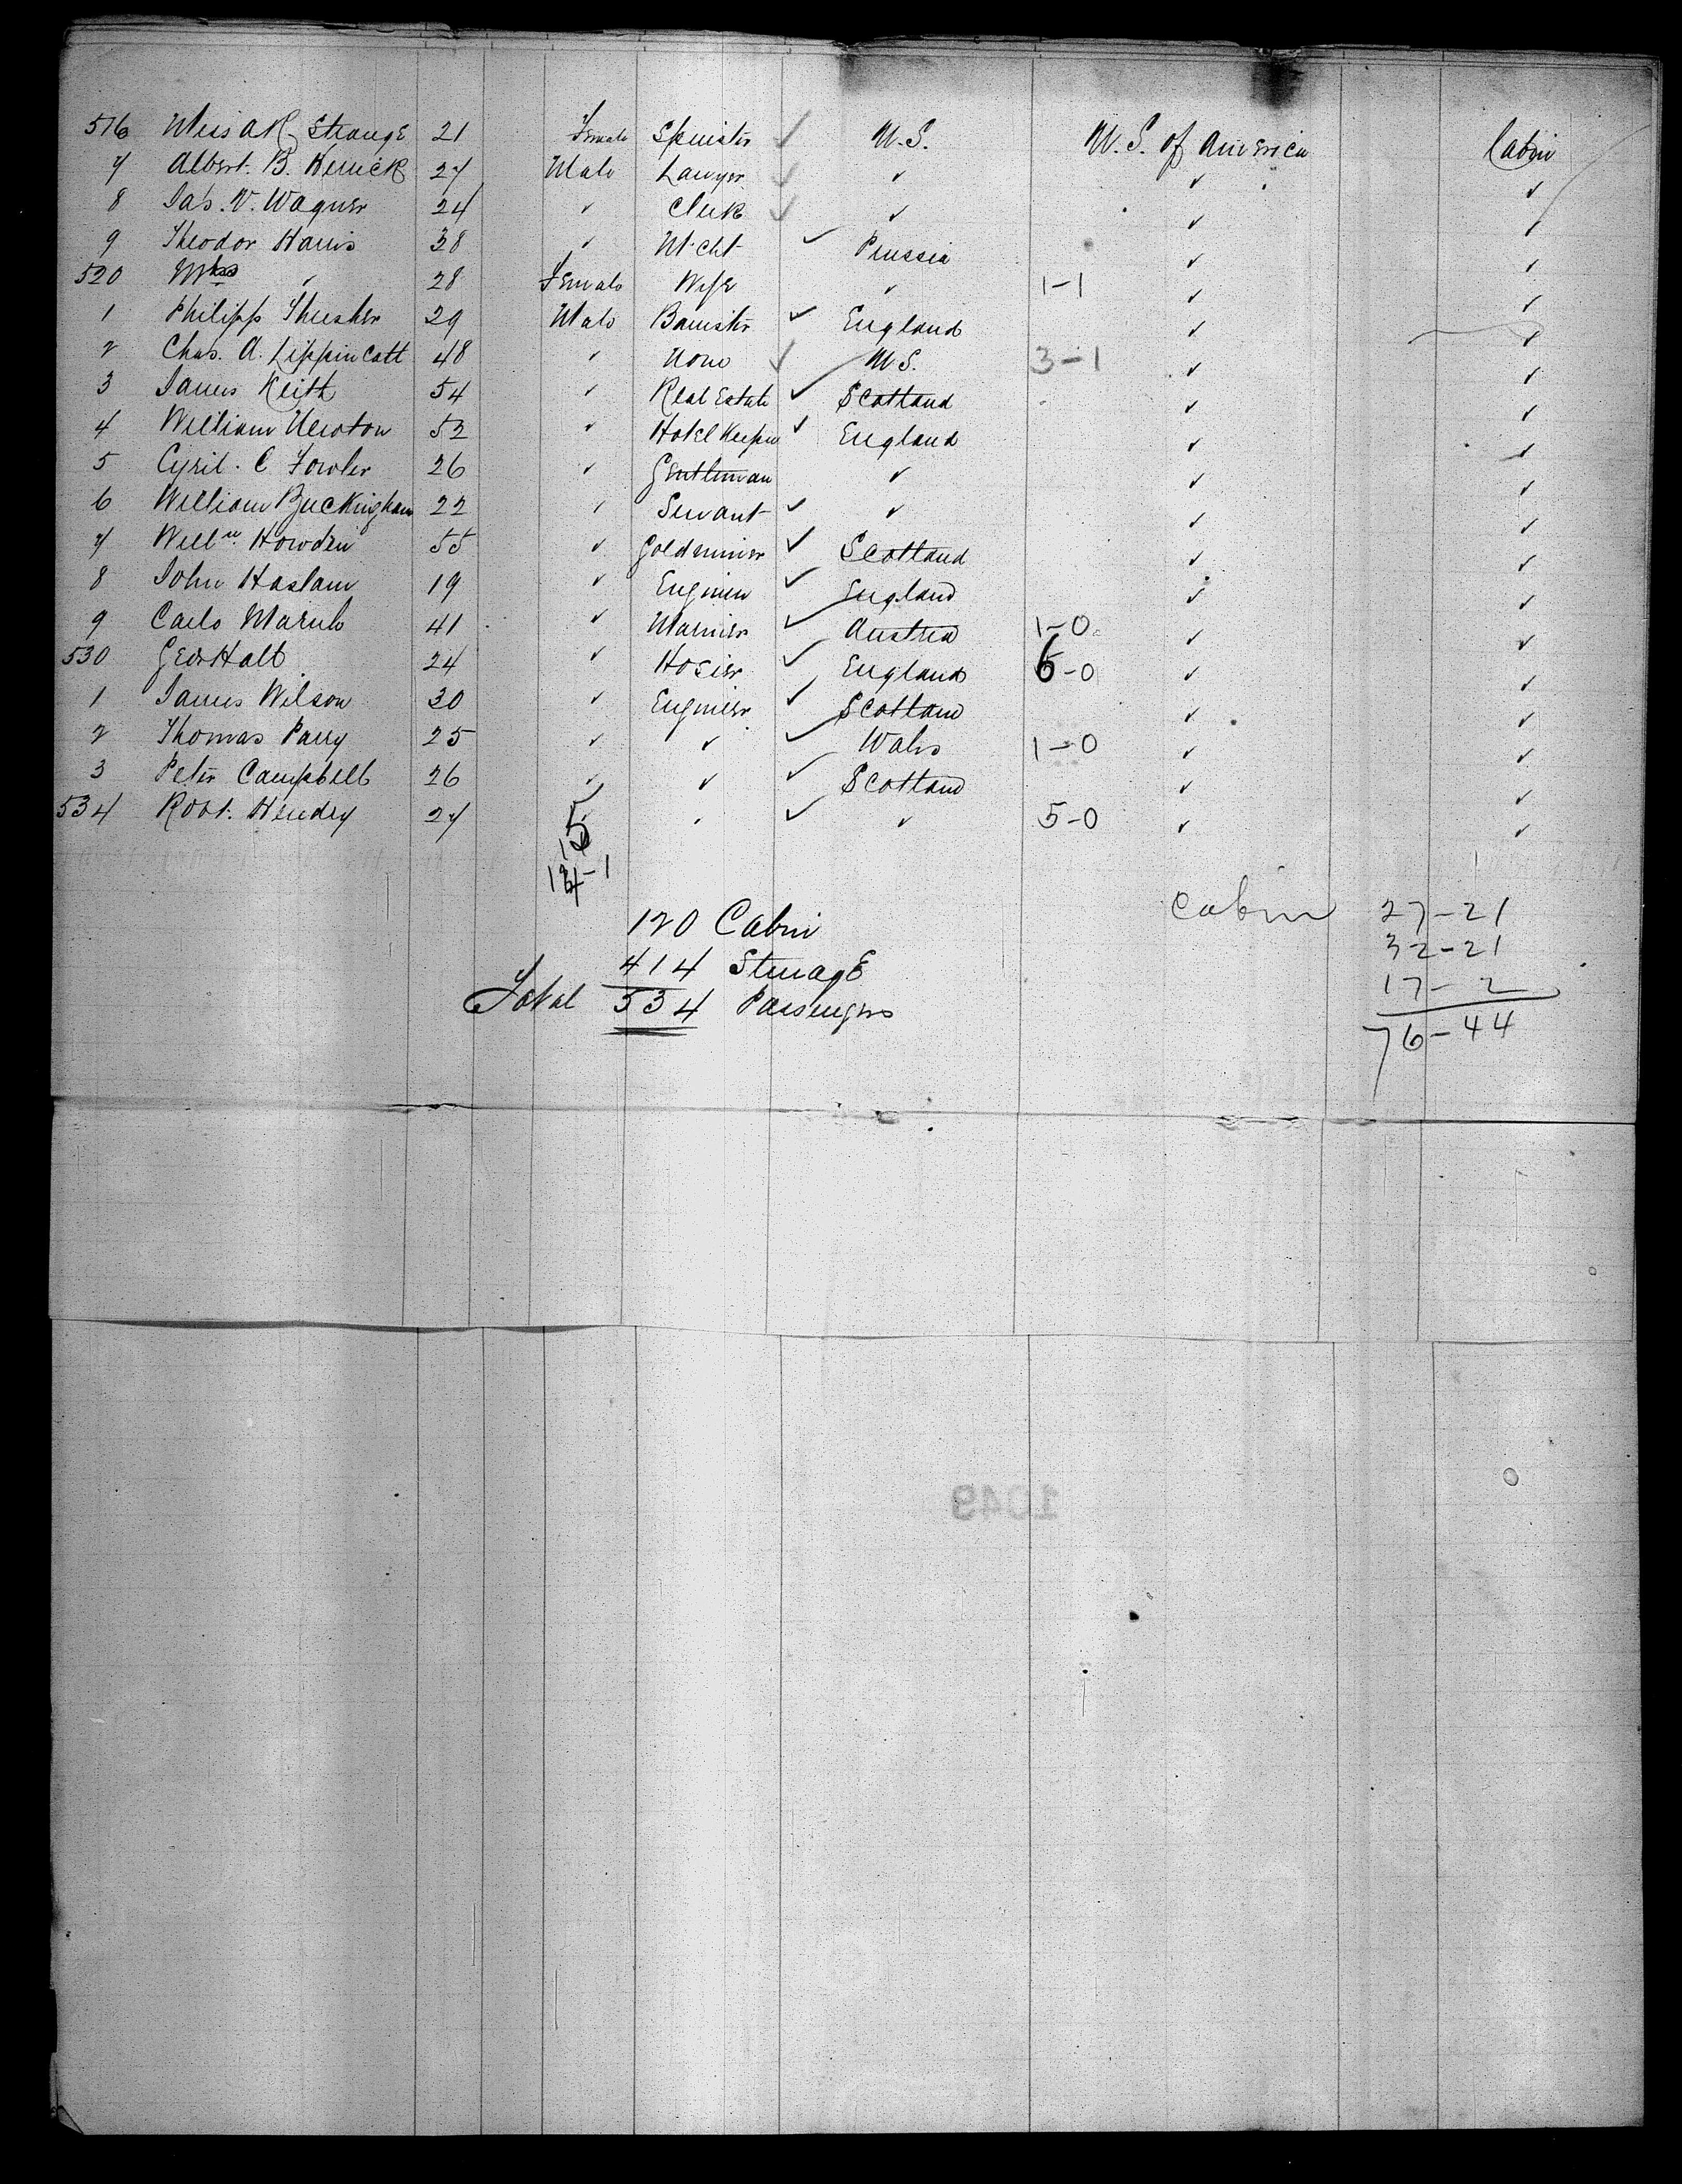 516 Miss A K Strange 21 Female Spinster ✓ U.S. U.S. of America Cabin
7 Albert. B. Kerrick 27 Male Lawyer ✓ ✓ ✓ ✓
8 Jas. V. Wagner 24 ✓ Clerk ✓ ✓ ✓ ✓
9 Theodor Harris 38 ✓ Mcht ✓ Prussia ✓ ✓
520 Mrs ✓ 28 Female Wife ✓ 1-1 ✓ ✓
1 Philipp Thusher 29 Male Barrister ✓ England ✓ ✓
2 Chas. A. Lippincott 48 ✓ None ✓ U.S. 3-1 ✓ ✓
3 James Keith 54 ✓ Real Estate ✓ Scotland ✓ ✓
4 William Newton 52 ✓ Hotel Keeper ✓ England ✓ ✓
5 Cyril. C Fowler 26 ✓ Gentleman ✓ ✓ ✓
6 William Buckingham 22 ✓ Servant ✓ ✓ ✓ ✓
7 Willm. Howden 55 ✓ Goldminer ✓ Scotland ✓ ✓
8 John Haslam 19 ✓ Engineer ✓ England ✓ ✓
9 Carlo 41 ✓ Mariner ✓ Austria 1-0 ✓ ✓
530 Geo Halt 24 ✓ Hosier ✓ England 6-0 ✓ ✓
1 James Wilson 30 ✓ Engineer ✓ Scotland ✓ ✓
2 Thomas Parry 25 ✓ ✓ ✓ Wales 1-0 ✓ ✓
3 Peter Campbell 26 ✓ ✓ ✓ Scotland ✓ ✓
534 Robt. Hendry 27 ✓ ✓ ✓ ✓ 5-0 ✓ ✓
120 Cabin
414 Steerage
Total 534 Passengers
Cabin 27-21
32-21
17-2
76-44
1049